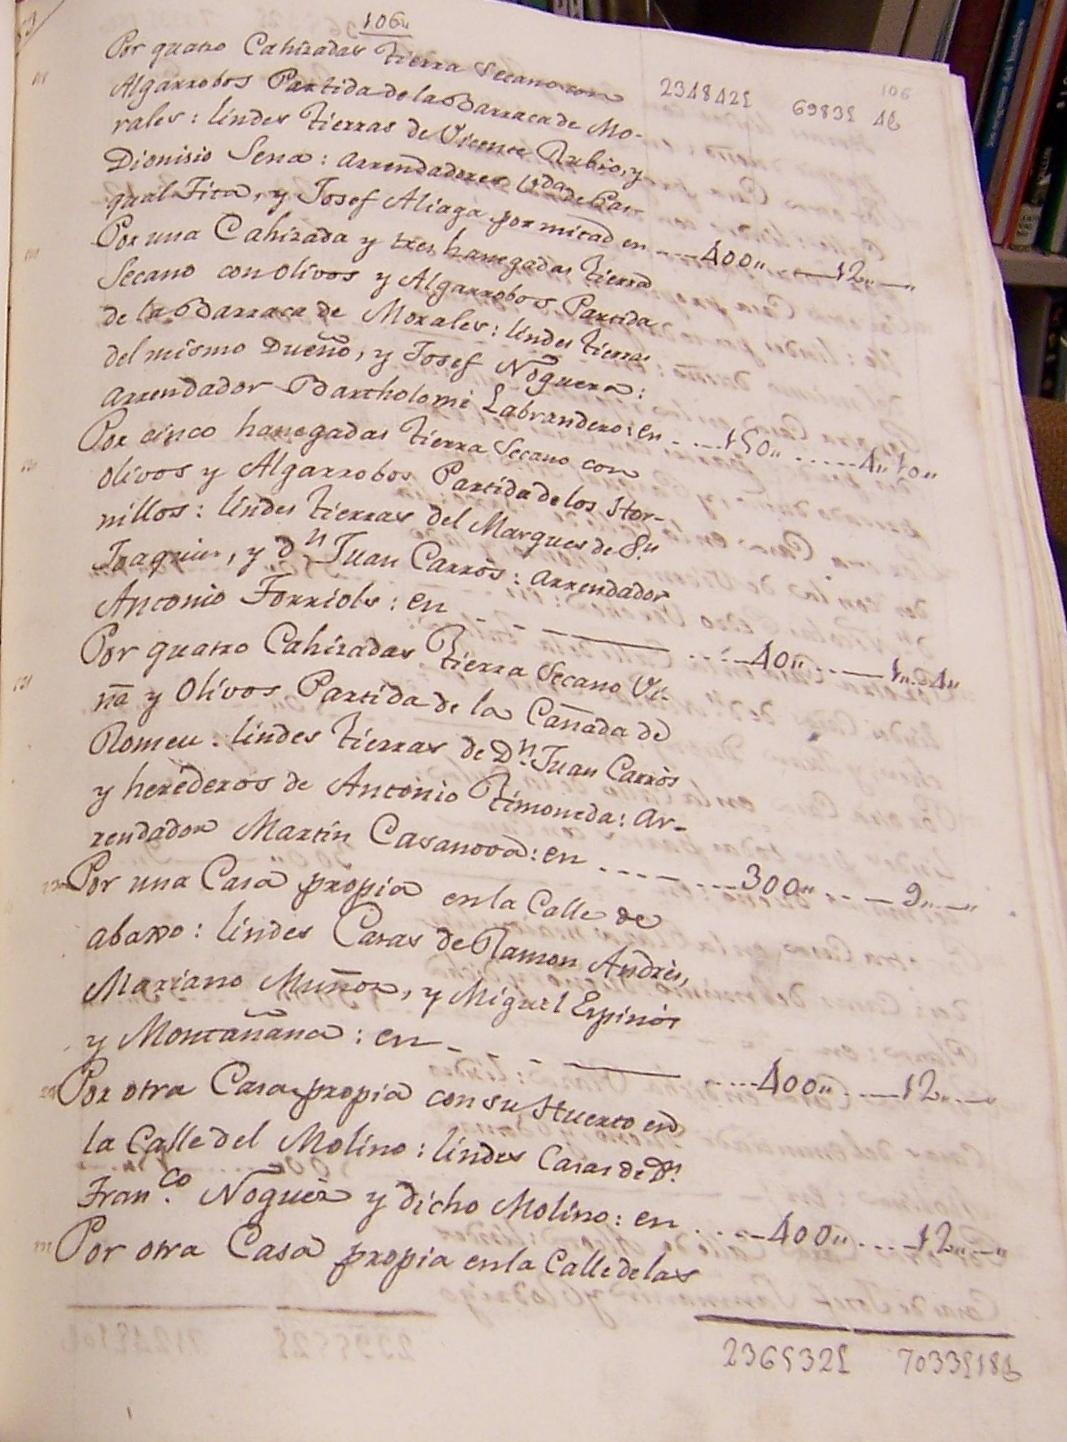 106
106
Por quatro Cahizadas tierra secano con 2348425 69835 46
Algarrobos Partida de la Barraca de Mo-
rales: lindes tierras de Vicente Rubio, y
Dionisio Sena: arrendadores V.da de Pas-
qual Fita, y Josef Aliaga por mitad en --- 400,, --- 12,,--,,
Por una Cahizada y tres hanegadas tierra
Secano con olivos y Algarrobos Partida
de la Barraca de Morales: lindes tierras
del mismo Dueño, y Josef Noguera:
arrendador Bartholome Labrandero: en --- 150,, ----- 4,,10,,
Por cinco hanegadas tierra Secano con
olivos y Algarrobos Partida de los Hor-
nillos: lindes tierras del Marques de S.n
Joaquin, y D.n Juan Carròs: arrendador
Antonio Forriols: en --- 40,, ----- 1,,..4,,
Por quatro Cahizadas tierra Secano Vi-
ña y Olivos Partida de la Cañada de
Romeu: lindes tierras de D.n Juan Carròs
y herederos de Antonio Timoneda: ar-
rendador Martin Casanova: en ----- 300,, --- 9,,--,,
Por una Casa propia en la Calle de
abaxo: lindes Casas de Ramon Andrès,
Mariano Muñoz, y Miguel Espinòs
y Montañana: en --- 400,, ---- 12,,--,,
Por otra Casa propia con su Huerto en
la Calle del Molino: lindes Casas de D.n
Fran.co Noguèr y dicho Molino: en ---- 400,, ---- 12,,--,,
Por otra Casa propia en la Calle de las
2365325 7033518